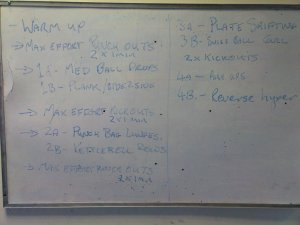 WARM UP
MAX EFFORT PUNCH OUTS
2 x 1 min
1A - MED BALL DROPS
1B - PLANK/SIDE-SIDE
MAX EFFORT KICKOUTS
2 x 1 min
2A - PUNCH BAG LUNGES
2B - KETTLEBELL ROWS
MAX EFFORT PUNCH OUTS
2 x 1 min
3A - PLATE SHIFTING
3B - SWISS BALL CURL
2 x KICKOUTS
4A -
4B - Reverse hyper